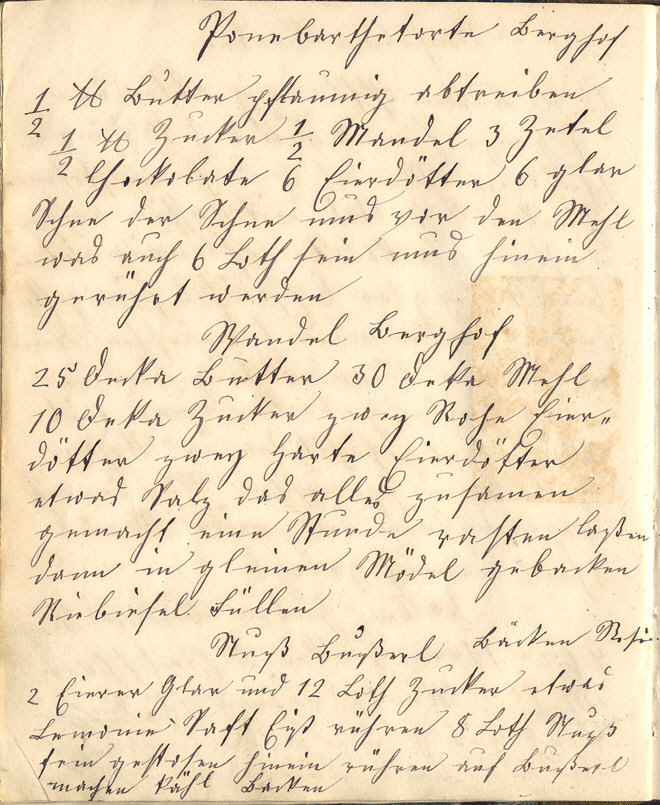 Ponebarthetorte Berghof
1/2 ℔ Butter pflaumig abtreiben
1/2 ℔ Zucker 1/2 Mandel 3 Zetel
Chockolate 6 Eierdötter 6 glar
Schne der Schne muß vor den Mehl
was auch 6 Loth sein muß hinein
gerührt werden
Mandel Berghof
25 Decka Butter 30 Deka Mehl
10 Deka Zucker zwey Rohe Eier„
dötter zwey harte Eierdötter
etwas Salz das alles zusamen
gemacht eine Stunde rasten laßen
dann in gleinen Mödel gebacken
Riebiesel Füllen
Nuß Bußerl Bäcken
2 Eierer Glar und 12 Loth Zucker etwas
Lemonie Saft Eist rühren 8 Loth Nuß
fein gestosen hinein rühren auf Bußerl
machen kühl Backen